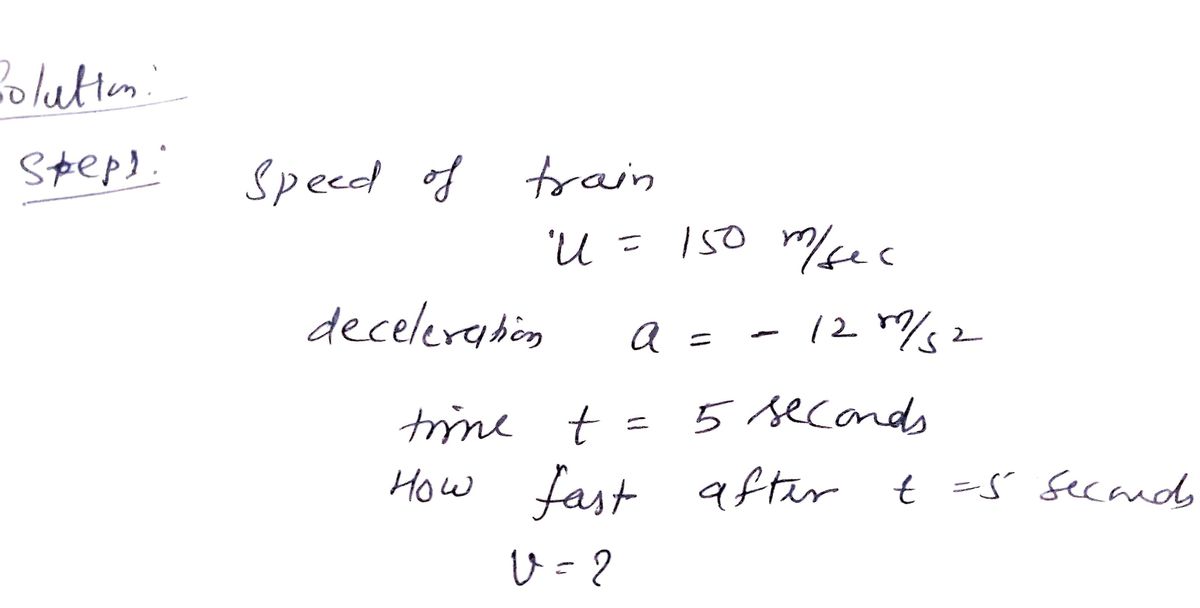 Solution:
Steps: Speed of train
u = 150 m/sec
deceleration a = - 12 m/s2
time t = 5 seconds
How fast after t = 5 seconds
v = ?